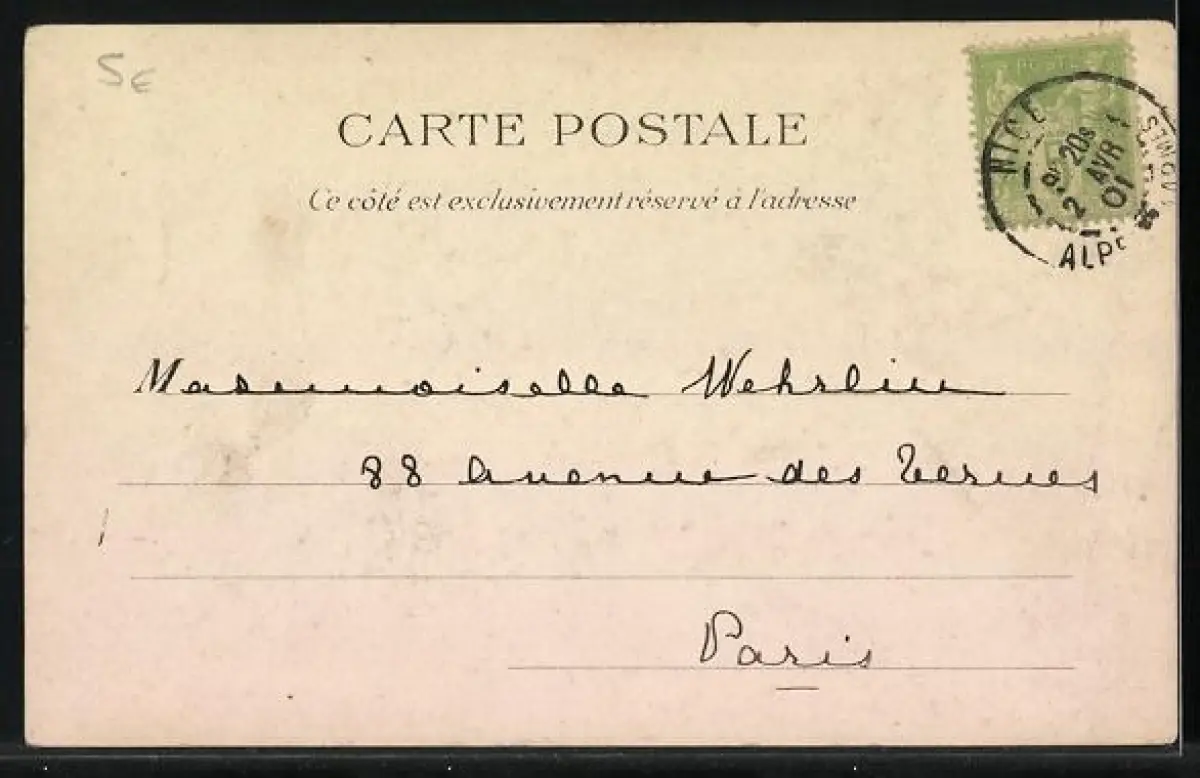 5€
CARTE POSTALE
Ce côté est exclusivement réservé à l'adresse
POSTE
NICE
9 20s
12 AVR
01
ALP
Mademoiselle Wehrlin
88 Avenue des Ternes
Paris